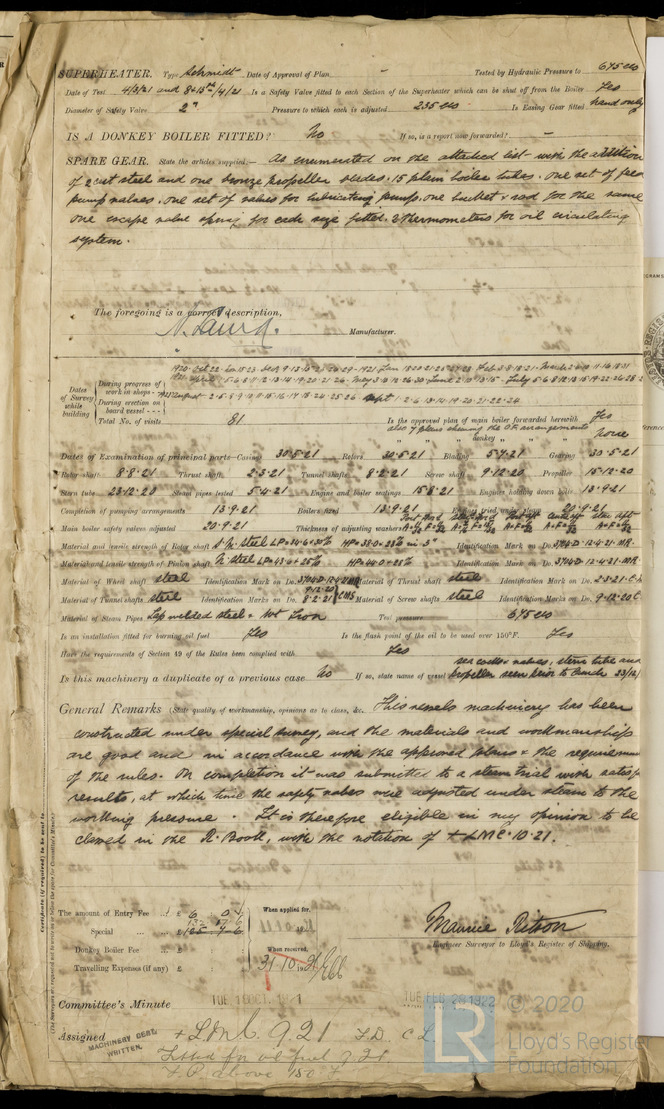 SUPERHEATER. Type Schmidt Date of Approval of Plan - Tested by Hydraulic Pressure to 675
Date of Test 4/3/21 and 8+15th/4/21 Is a Safety Valve fitted to each Section of the Superheater which can be shut off from the Boiler Yes
Diameter of Safety Valve 2" Pressure to which each is adjusted 235 Is Easing Gear fitted hand only
IS A DONKEY BOILER FITTED? No If so, is a report now forwarded? -
SPARE GEAR. State the articles supplied:— As enumerated on the attached list with the addition
of 2 cast steel and one bronze propeller blades. 15 plain boiler tubes. one set of feed
pump valves. one set of valves for lubricating pump. one bucket & rod for the same
one escape valve spring for each size fitted. 2 thermometers for oil circulating
system.
The foregoing is a correct description,
N. Laing. Manufacturer.
Dates of Survey while building
During progress of work in shops - -
During erection on board vessel - - -
Total No. of visits 81
Is the approved plan of main boiler forwarded herewith Yes
also 7 plans shewing the O.F. arrangements
" " " donkey " " none
Dates of Examination of principal parts—Casings 30.5.21 Rotors 30.5.21 Blading 5.7.21 Gearing 30.5.21
Rotor shaft 8.8.21 Thrust shaft 2.3.21 Tunnel shafts 8.2.21 Screw shaft 9.12.20 Propeller 15.12.20
Stern tube 23.12.20 Steam pipes tested 5.4.21 Engine and boiler seatings 15.8.21 Engines holding down bolts 13.9.21
Completion of pumping arrangements 13.9.21 Boilers fixed 13.9.21 Engines tried under steam 20.9.21
Main boiler safety valves adjusted 20.9.21 Thickness of adjusting washers
Material and tensile strength of Rotor shaft Identification Mark on Do. 3704D.12.4.21.MR.
Material and tensile strength of Pinion shaft Identification Mark on Do. 3704D.12.4.21.MR.
Material of Wheel shaft steel Identification Mark on Do. Material of Thrust shaft steel Identification Mark on Do. 2.3.21
Material of Tunnel shafts steel Identification Marks on Do. 9.12.20 8.2.21 CMS Material of Screw shafts steel Identification Marks on Do. 9.12.20
Material of Steam Pipes Lap welded steel & Wt Iron Test pressure 675
Is an installation fitted for burning oil fuel Yes Is the flash point of the oil to be used over 150°F. Yes
Have the requirements of Section 49 of the Rules been complied with Yes
sea cocks & valves, stern tube and
Is this machinery a duplicate of a previous case No If so, state name of vessel propeller seen prior to launch 23/12/
General Remarks (State quality of workmanship, opinions as to class, &c. This vessels machinery has been
constructed under special survey, and the materials and workmanship
are good and in accordance with the approved plans & the requirem
of the rules. On completion it was submitted to a steam trial with satisf
results, at which time the safety valves were adjusted under steam to the
working pressure. It is therefore eligible in my opinion to be
classed in the R. Book, with the notation of + LMC.10.21.
Certificate (if required) to be sent to
(The Surveyors are requested not to write on or below the space for Committee's Minute.)
The amount of Entry Fee .. £ 6 : 0 When applied for,
Special ... ... £
Donkey Boiler Fee ... £ When received,
Travelling Expenses (if any) £ 31.10.21
Maurice Ritson
Engineer Surveyor to Lloyd's Register of Shipping.
Committee's Minute TUE. OCT. TUE. FEB. 28 1922
Assigned + LMC. 9.21 F.D. C.L.
MACHINERY CERT. WRITTEN.
Fitted for oil fuel 9.21
F.P. above 150°F
LR
© 2020
Lloyd's Register
Foundation